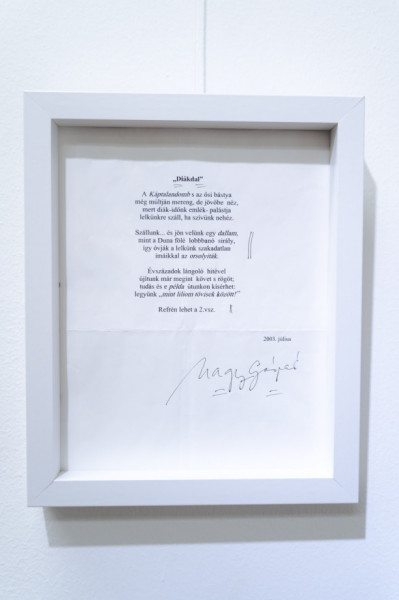 „Diákdal”
A Káptalandomb s az ősi bástya
még múltján mereng, de jövőbe néz,
mert diák-időnk emlék- palástja
lelkünkre száll, ha szívünk nehéz.
Szállunk... és jön velünk egy dallam,
mint a Duna fölé lobbbanó sirály,
így óvják a lelkünk szakadatlan
imáikkal az orsolyiták.
Évszázadok lángoló hitével
újítunk már megint követ s rögöt;
tudás és e példa utunkon kísérhet:
legyünk „mint liliom tövisek között!”
Refrén lehet a 2.vsz.
2003. július
Nagy Gáspár